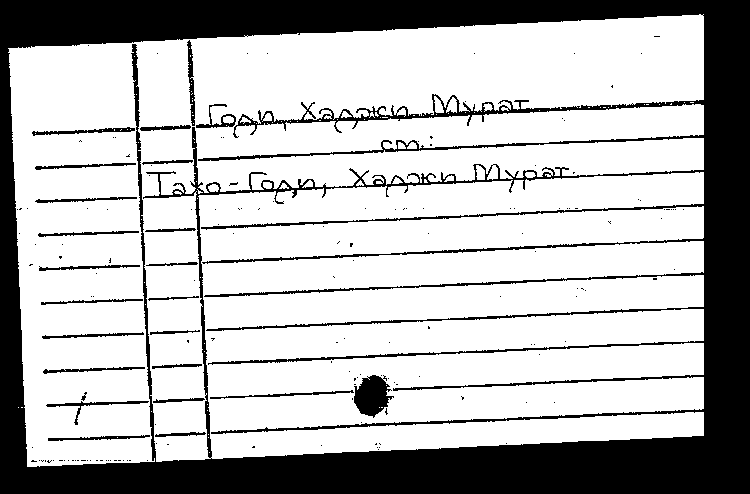 Годи, Хаджи Мурат
см.:
Тахо-Годи, Хаджи Мурат.
/